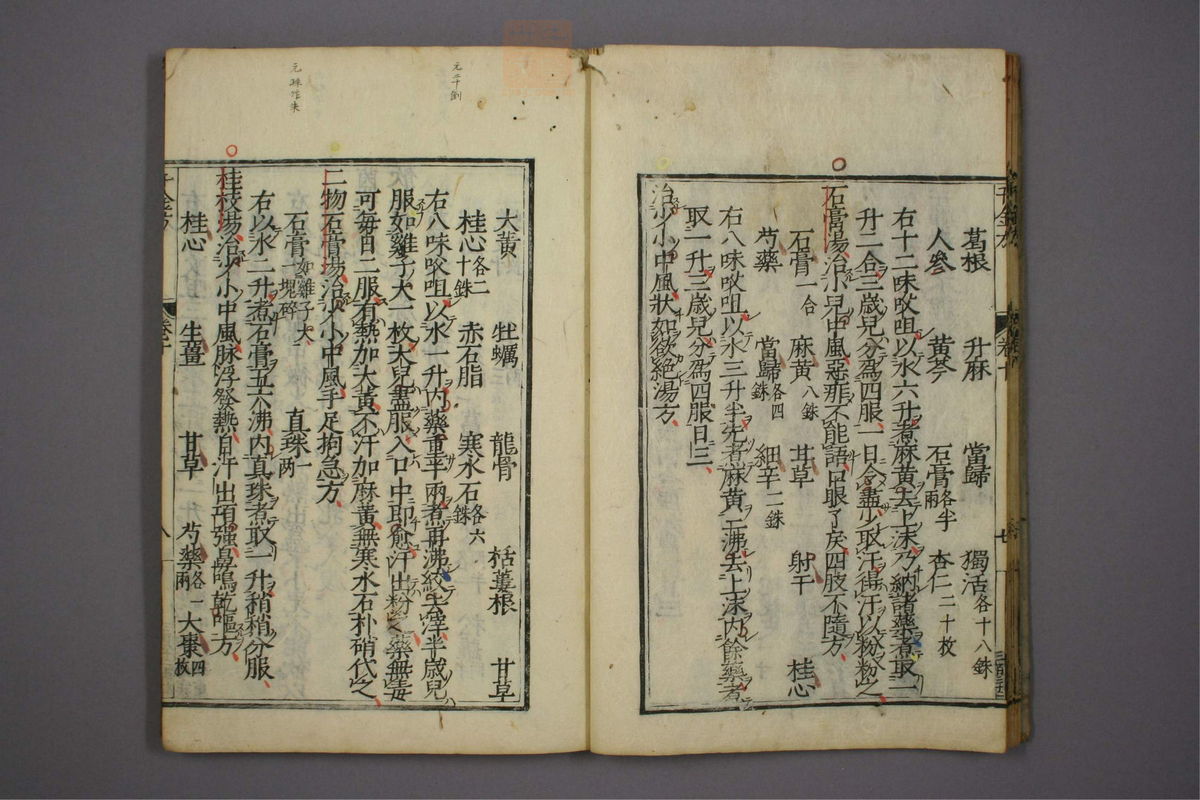 葛根 升麻 當歸 獨活各十八銖
人參 黃芩 石膏各半兩 杏仁二十枚
右十二味㕮咀以水六升煮麻黃去上沫乃納諸藥煮取一
升二合三歲兒分爲四服一日令盡少取汗得汗以粉粉之
石膏湯治小兒中風惡痱不能語口眼了戾四肢不隨方
石膏一合 麻黃八銖 甘草 射干 桂心
芍藥 當歸各四銖 細辛二銖
右八味㕮咀以水三升半先煮麻黃三沸去上沫內餘藥煮
取一升三歲兒分爲四服日三
治少小中風狀如欲絕湯方
大黃 牡蠣 龍骨 栝蔞根 甘草
桂心各二十銖 赤石脂 寒水石各六銖
右八味㕮咀以水一升內藥重半兩煮再沸絞去滓半歲兒
服如雞子大一枚大兒盡服入口中即愈汗出粉之藥無毒
可每日二服有熱加大黃不汗加麻黃無寒水石朴硝代之
二物石膏湯治少小中風手足拘急方
石膏如雞子大一塊碎 真珠一兩
右以水二升煮石膏五六沸內真珠煮取一升稍稍分服
桂枝湯治少小中風脉浮發熱自汗出項強鼻鳴乾嘔方
桂心 生薑 甘草 芍藥各一兩 大棗四枚